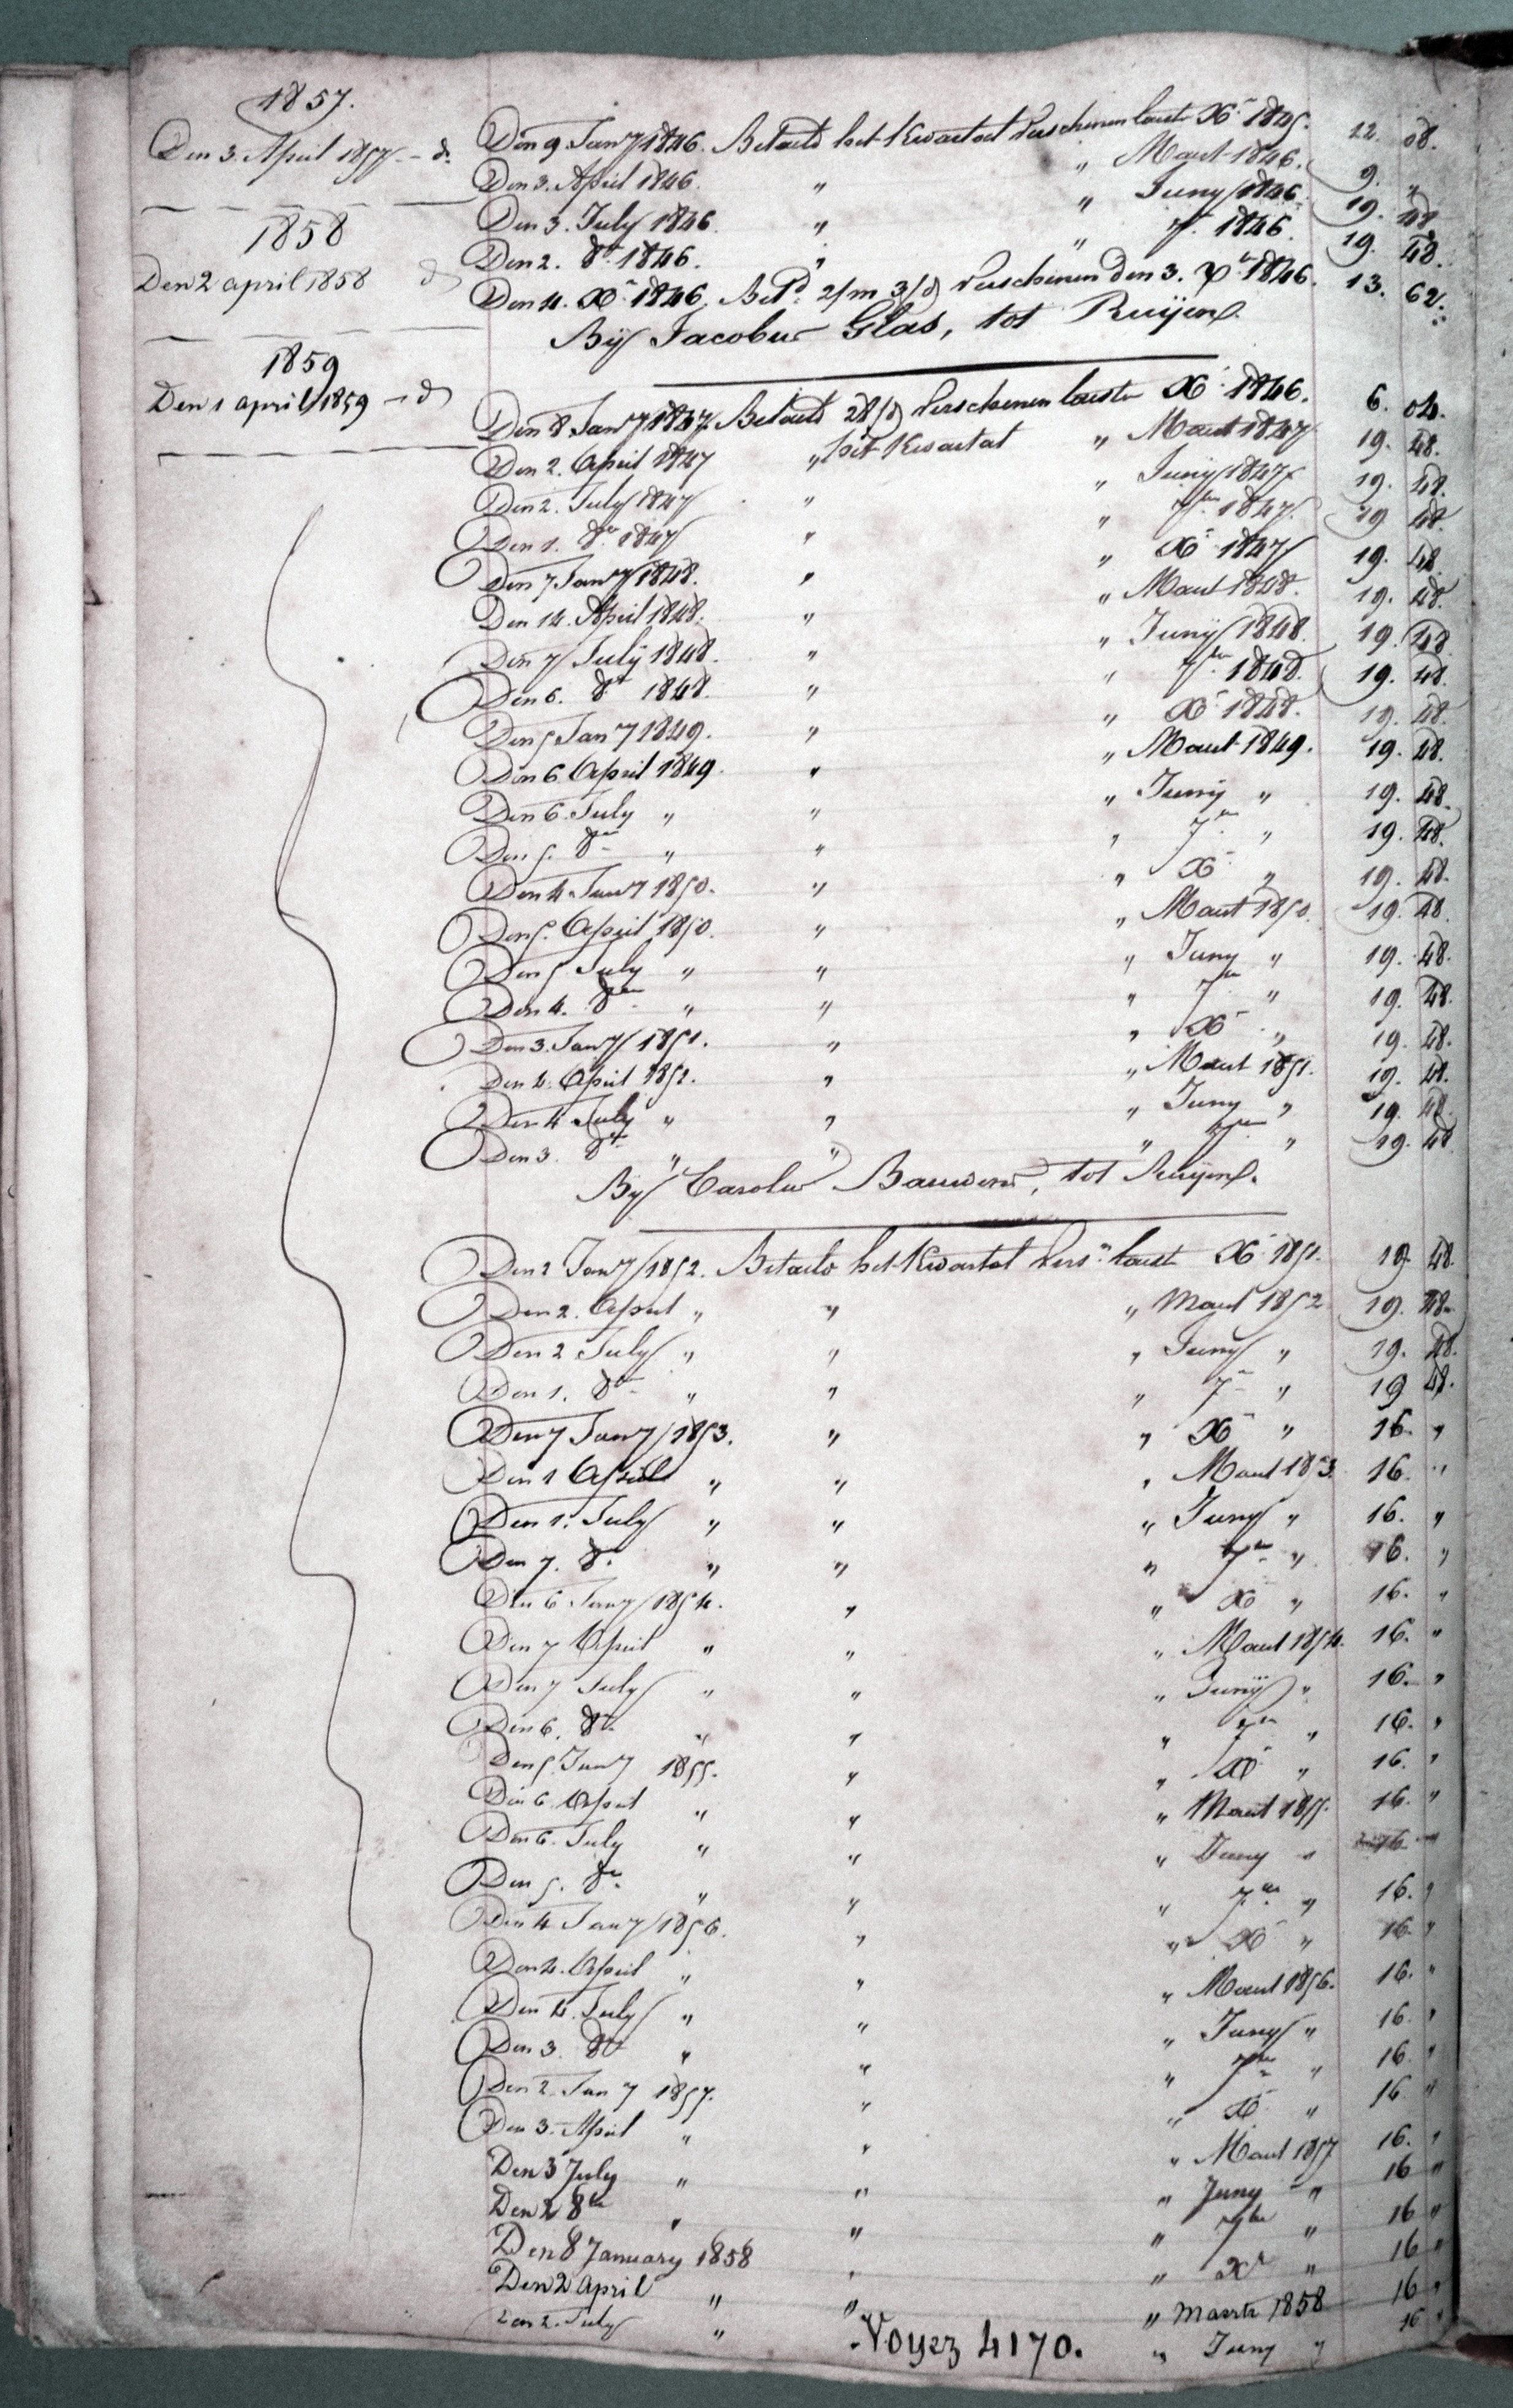 1857.
Den 3. April 1857 - d.
1858
Den 2 april 1858 d
1859
Den 1 april 1859 - d
Den 9 Jan^y 1846. Betaeld het Kwartael Verschenen laest X^r 1845. 12. 08.
Den 3. April 1846. " " Maert 1846. 9. "
Den 3. July 1846. " " Juny 1846. 19. 48
Den 2. 8^r 1846. " " 7^r 1846. 19. 48.
Den 4. X^r 1846. Bet^d 2/m 3/d Verschenen den 3. X^r 1846. 13. 62.
By Jacobus Glas, tot Ruijen.
Den 8 Jan^y 1847. Betaeld 28/d Verschenen laeste X^r 1846. 6. 04.
Den 2. April 1847 " het Kwartael " Maert 1847 19. 48.
Den 2. July 1847 " " Juny 1847 19. 48.
Den 1. 8^r 1847 " " 7^ber 1847. 19 48.
Den 7 Jan^y 1848. " " X^r 1847 19. 48
Den 14. April 1848. " " Maert 1848. 19. 48.
Den 7 July 1848. " " Juny 1848. 19. 48
Den 6. 8^r 1848. " " 7^ber 1848. 19. 48.
Den 5 Jan^y 1849. " " X^r 1848. 19. 48.
Den 6 April 1849. " " Maert 1849. 19. 48.
Den 6. July " " " Juny " 19. 48.
Den 5. 8^r " " " 7^r " 19. 48.
Den 4. Jan^y 1850. " " X^r " 19. 48.
Den 5. April 1850. " " Maert 1850. 19. 48.
Den 5 July " " " Juny " 19. 48.
Den 4. 8^r " " " 7^r " 19. 48.
Den 3. Jan^y 1851. " " X^r " 19. 48.
Den 4. April 1851. " " Maert 1851. 19. 48.
Den 4 July " " " Juny " 19. 48.
Den 3. 8^r " " " 7^r " 19. 48
By Carolus Bauwens, tot Ruijen.
Den 2 Jan^y 1852. Betaeld het Kwartael Vers^n laest X^r 1851. 19. 48.
Den 2. April " " " Maert 1852 19. 48.
Den 2 July " " " Juny " 19. 48.
Den 1. 8^r " " " 7^r " 19 48.
Den 7 Jan^y 1853. " " X^r " 16. "
Den 1 April " " " Maert 1853. 16. "
Den 1. July " " " Juny " 16. "
Den 7. 8^r " " " 7^r " 16. "
Den 6 Jan^y 1854. " " X^r " 16. "
Den 7 April " " " Maert 1854. 16. "
Den 7 July " " " Juny " 16. "
Den 6. 8^r " " " 7^r " 16. "
Den 5 Jan^y 1855. " " X^r " 16. "
Den 6. April " " " Maert 1855. 16. "
Den 6. July " " " Juny " 16. "
Den 5. 8^r " " " 7^r " 16. "
Den 4 Jan^y 1856. " " X^r " 16. "
Den 4. April " " " Maert 1856. 16. "
Den 4. July " " " Juny " 16. "
Den 3. 8^r " " " 7^r " 16. "
Den 2. Jan^y 1857. " " X^r " 16. "
Den 3. April " " " Maert 1857 16. "
Den 3 July " " " Juny " 16 "
Den 2 8^br " " " 7^br " 16 "
Den 8 January 1858 " " X^r " 16 "
Den 2 April " " " Maerte 1858 16 "
Den 2. July " " Juny " 16 "
Voyez 4170.